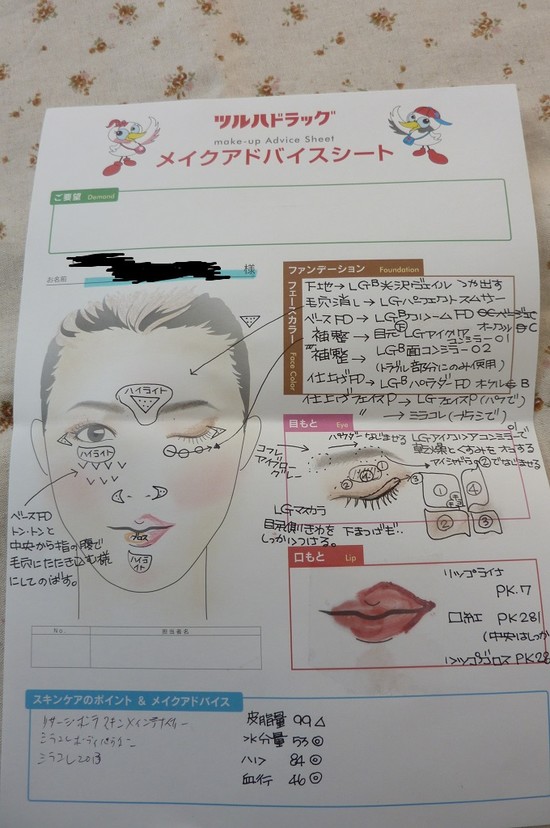 ツルハドラッグ
make-up Advice Sheet
メイクアドバイスシート
ご要望 Demand
お名前
様
ファンデーション Foundation
フェースカラー Face Color
下地→LGB光沢ヴェイル つや出す
毛穴消し→LGパーフェクトスムサー
ベースFD→LGBクリームFD
オークル
補整→目元
コンミラー01
補整→LGB面コンミラー02
(トラブル部分にのみ使用)
仕上げFD→LGBパウダーFD オークルB
仕上げフェイスP→LGフェイスP(パフで)
〃 →ミラコレ(ブラシで)
ハイライト
ハイライト
ハイライト
グロス
ベースFD
トントンと
中央から指の腹で
毛穴にたたき込む様
にしてのばす。
目もと Eye
パウダーなじませる
アイシャドウ②でなじませる
コフレ
アイブロー
グレー
① ② ③ ④
LGマスカラ
しっかりつける。
下まつげも‥
口もと Lip
リップライナ
PK.7
口紅 PK281
(中央はしっか
リップグロス PK28
No.
担当者名
スキンケアのポイント & メイクアドバイス
ミラコレボディパウダー
ミラコレ2013
皮脂量 99 △
水分量 53 ◎
ハリ 84 ◎
血行 46 ◎